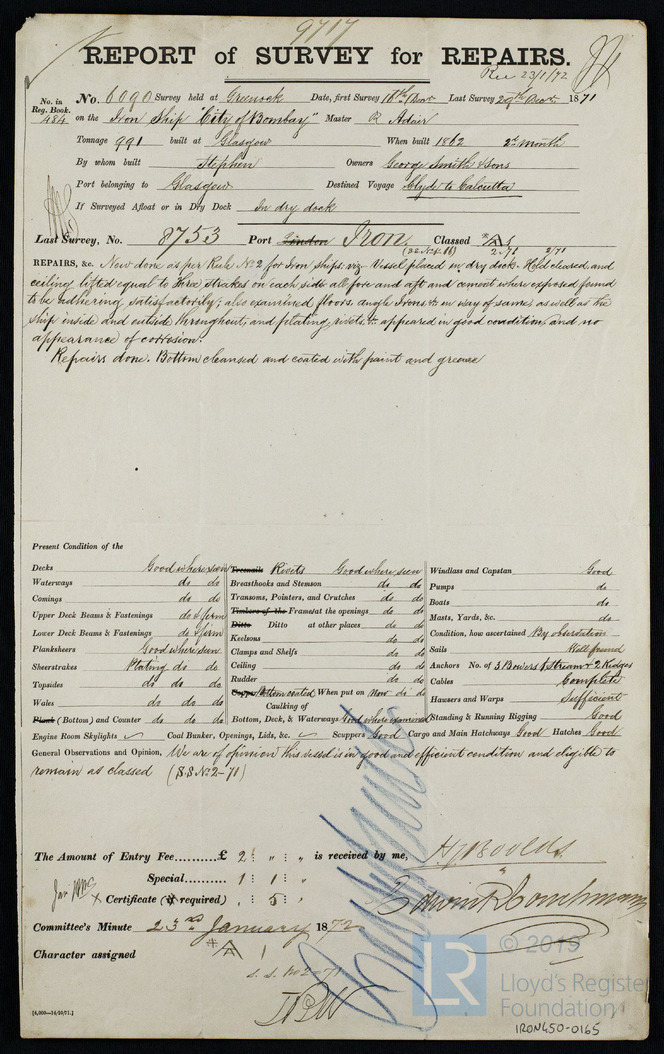 9717
REPORT of SURVEY for REPAIRS.
Rec 23/1/72
No. in Reg. Book. 484
No. 6090 Survey held at Greenock Date, first Survey 16th Decr Last Survey 29th Decr 1871
on the Iron Ship "City of Bombay" Master R Adair
Tonnage 991 built at Glasgow When built 1862 2nd Month
By whom built Stephen Owners George Smith & Sons
Port belonging to Glasgow Destined Voyage Clyde to Calcutta
If Surveyed Afloat or in Dry Dock In dry dock
Last Survey, No. 8753 Port London Iron Classed A1
2,71 2/71
REPAIRS, &c. Now done as per Rule No 2 for Iron Ships, viz. Vessel placed in dry dock. Hold cleared, and
ceiling lifted equal to three strakes on each side all fore and aft and cement where exposed found
to be adhering satisfactorily; also examined floors, angle Irons, &c. in way of same, as well as the
ship inside and outside throughout, and plating, rivets, &c. appeared in good condition, and no
appearance of corrosion.
Repairs done. Bottom cleansed and coated with paint and grease
Present Condition of the
Decks Good where seen
Waterways do do
Comings do do
Upper Deck Beams & Fastenings do & firm
Lower Deck Beams & Fastenings do & firm
Planksheers Good where seen
Sheerstrakes Plating do do
Topsides do do do
Wales do do do
Plank (Bottom) and Counter do do do
Treenails Rivets Good where seen
Breasthooks and Stemson do do
Transoms, Pointers, and Crutches do do
Timbers of the Frames at the openings do do
Ditto Ditto at other places do do
Keelsons do do
Clamps and Shelfs do do
Ceiling do do
Rudder do do
Copper Bottom coated When put on Now do do
Caulking of
Bottom, Deck, & Waterways Good where examined
Windlass and Capstan Good
Pumps do
Boats do
Masts, Yards, &c. do
Condition, how ascertained By observation
Sails Well found
Anchors No. of 3 Bowers 1 Stream & 2 Kedges
Cables Complete
Hawsers and Warps Sufficient
Standing & Running Rigging Good
Engine Room Skylights ✓ Coal Bunker, Openings, Lids, &c. ✓ Scuppers Good Cargo and Main Hatchways Good Hatches Good
General Observations and Opinion, We are of opinion this vessel is in good and efficient condition and eligible to
remain as classed (S.S No 2-71)
The Amount of Entry Fee..........£ 2 : " : " is received by me,
Special.......... 1 : 1 : "
× Certificate (if required) , : 5 : "
Committee's Minute 23rd January 1872
Character assigned A 1
S.S. No 2-71
[4,000—14/10/71.]
LR
© 2019
Lloyd's Register
Foundation
IRON450-0165